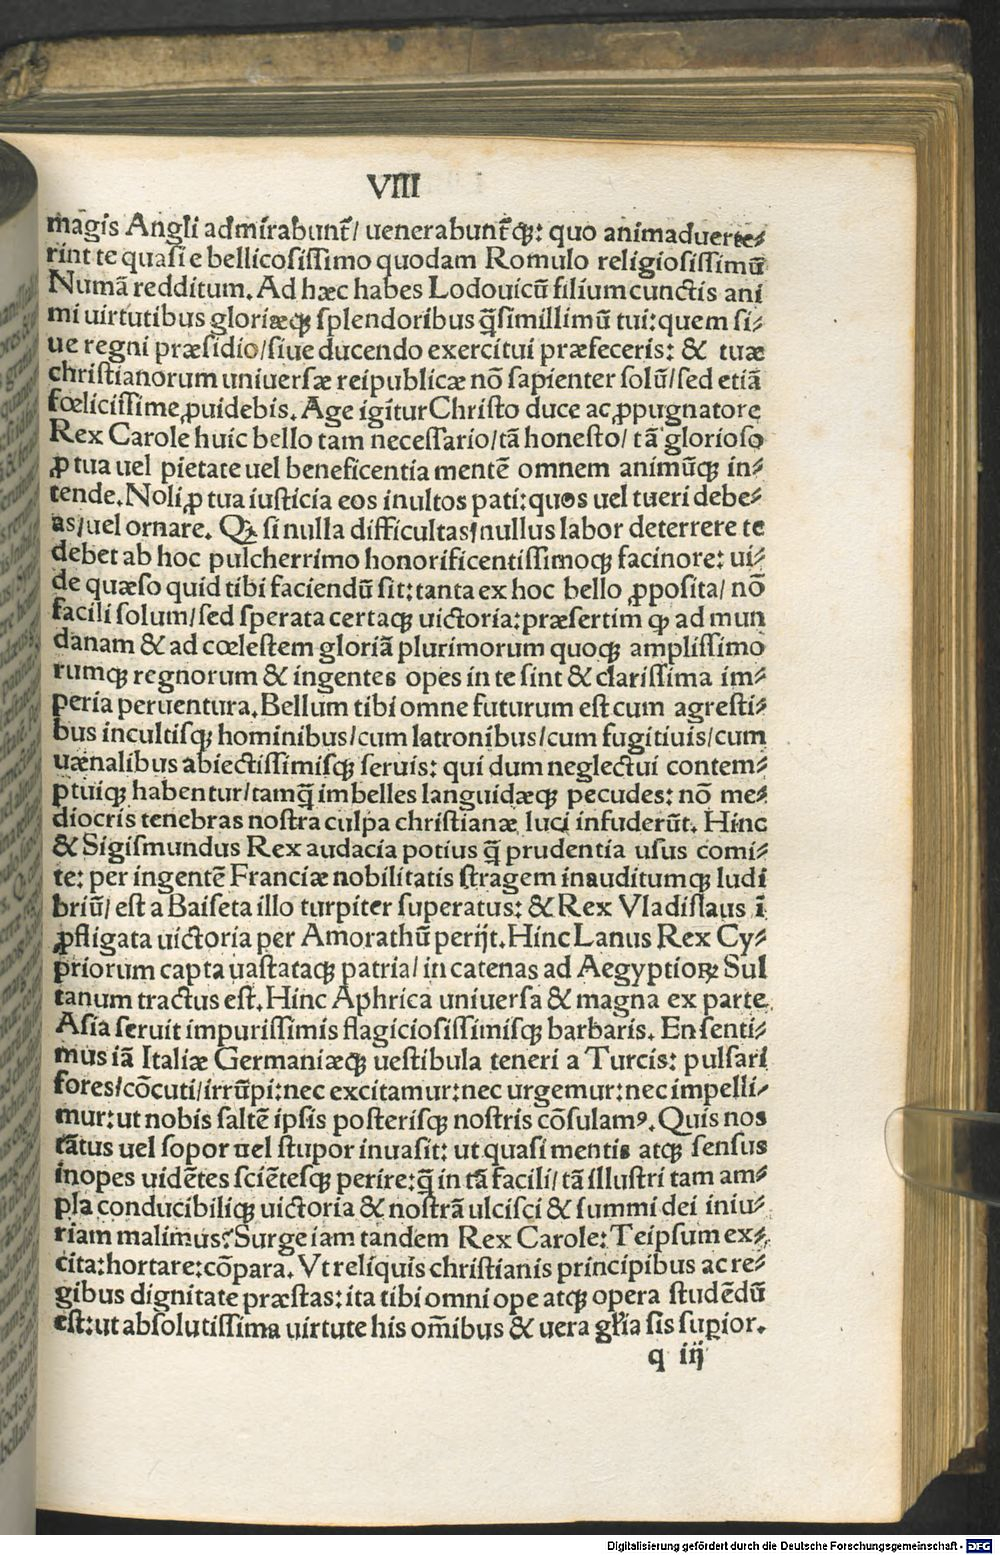 VIII
magis Angli admirabunt᷑/ uenerabunt᷑qꝫ: quo animaduerte⸗
rint te quasi e bellicosissimo quodam Romulo religiosissimū
Numā redditum. Ad hæc habes Lodouicū filium cunctis ani
mi uirtutibus gloriæqꝫ splendoribus q̄simillimū tui: quem si⸗
ue regni præsidio/siue ducendo exercitui præfeceris: & tuæ
christianorum uniuersæ reipublicæ nō sapienter solū/sed etiā
fœlicissime ꝓuidebis. Age igitur Christo duce ac ꝓpugnatore
Rex Carole huic bello tam necessario/tā honesto/ tā glorioso
ꝓ tua uel pietate uel beneficentia mentē omnem animūqꝫ in⸗
tende. Noli ꝓ tua iusticia eos inultos pati: quos uel tueri debe⸗
as/uel ornare. Qꝫ si nulla difficultas/nullus labor deterrere te
debet ab hoc pulcherrimo honorificentissimoqꝫ facinore: ui⸗
de quæso quid tibi faciendū sit: tanta ex hoc bello ꝓposita/ nō
facili solum/sed sperata certaqꝫ uictoria: præsertim qꝫ ad mun
danam & ad cœlestem gloriā plurimorum quoqꝫ amplissimo
rumqꝫ regnorum & ingentes opes in te sint & clarissima im⸗
peria peruentura. Bellum tibi omne futurum est cum agresti⸗
bus incultisqꝫ hominibus/cum latronibus/cum fugitiuis/cum
uænalibus abiectissimisqꝫ seruis: qui dum neglectui contem⸗
ptuiqꝫ habentur/tamq̄ imbelles languidæqꝫ pecudes: nō me⸗
diocris tenebras nostra culpa christianæ luci infuderūt. Hinc
& Sigismundus Rex audacia potius q̄ prudentia usus comi⸗
te: per ingentē Franciæ nobilitatis stragem inauditumqꝫ ludi
briū/ est a Baiseta illo turpiter superatus: & Rex Vladislaus ī
ꝓfligata uictoria per Amorathū perijt. Hinc Lanus Rex Cy⸗
priorum capta uastataqꝫ patria/ in catenas ad Aegyptioꝝ Sul
tanum tractus est. Hinc Aphrica uniuersa & magna ex parte
Asia seruit impurissimis flagiciosissimisqꝫ barbaris. En senti⸗
mus iā Italiæ Germaniæqꝫ uestibula teneri a Turcis: pulsari
fores/cōcuti/irrūpi: nec excitamur: nec urgemur: nec impelli⸗
mur: ut nobis saltē ipsis posterisqꝫ nostris cōsulamꝰ. Quis nos
tātus uel sopor uel stupor inuasit: ut quasi mentis atqꝫ sensus
inopes uidētes sciētesqꝫ perire: q̄ in tā facili/ tā illustri tam am⸗
pla conducibiliqꝫ uictoria & nostrā ulcisci & summi dei iniu⸗
riam malimus? Surge iam tandem Rex Carole: Teipsum ex⸗
cita: hortare: cōpara. Vt reliquis christianis principibus ac re⸗
gibus dignitate præstas: ita tibi omni ope atqꝫ opera studēdū
est: ut absolutissima uirtute his om̄ibus & uera gl̄ia sis superior.
q iij
Digitalisierung gefördert durch die Deutsche Forschungsgemeinschaft - DFG